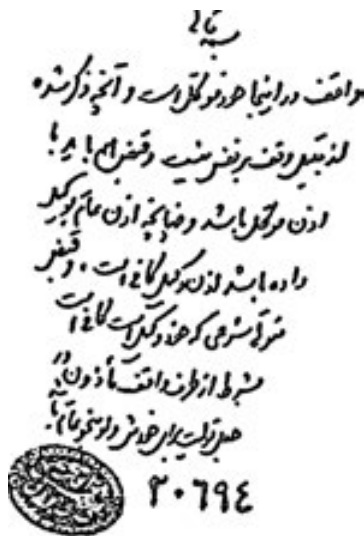 بسمه تعالی
واقف در اینجا خود موکل است و آنچه ذکر شده
از قبیل وقف بر نفس نیست و قبض هم باید با
اذن موکل باشد و چنانچه اذن عام به وکیل
داده باشد اذن وکیل کافی است. و قبض
متولی شرعی که خود وکیل است کافی است
مشروط از طرف واقف مأذون در
جعل تولیت برای خودش ولو بنحو عام باشد
۲۰۶۹٤